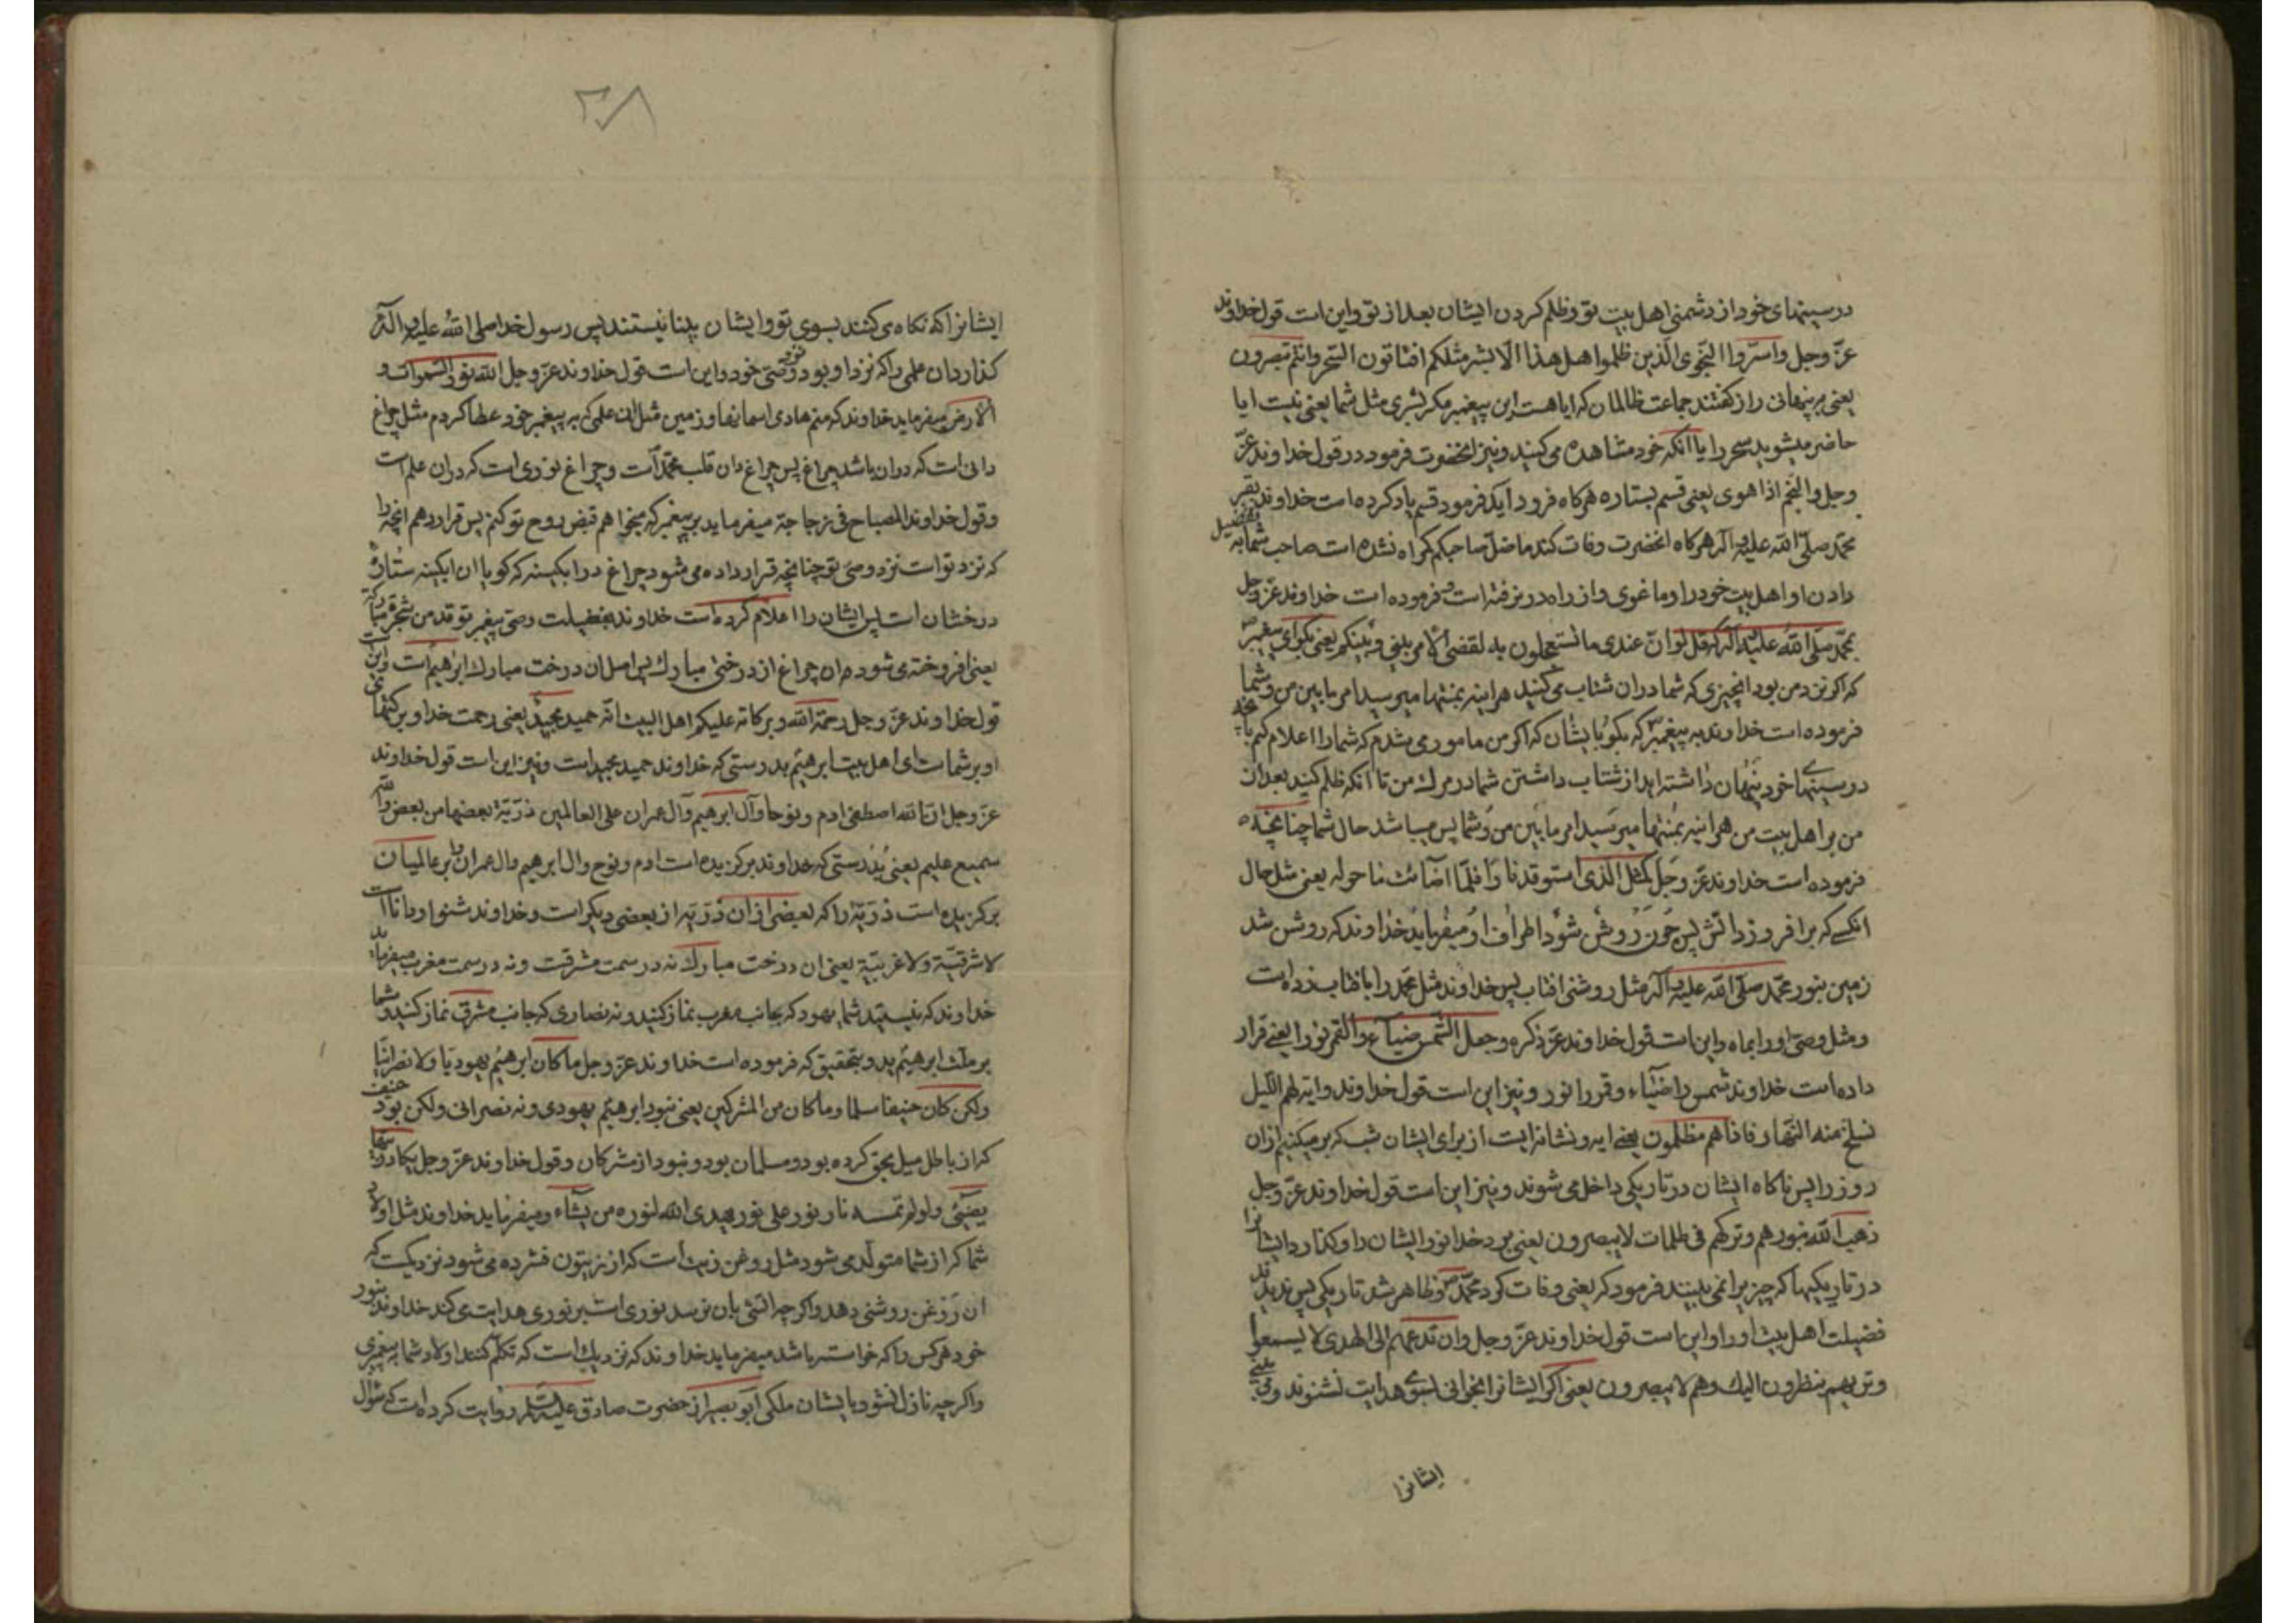 در سینهای خود از دشمنی اهل بیت تو و ظلم کردن ایشان بعد از تو و این است قول خداوند
عزّ و جل و اسرّوا النّجوی الّذین ظلموا هل هذا الّا بشر مثلکم افتاتون السّحر و انتم تبصرون
یعنی پنهانی راز گفتند جماعت ظالمان که ایا هست این پیغمبر مگر بشری مثل شما یعنی نیست ایا
حاضر میشوید سحر را یا آنکه خود مشاهده می کنید و نیز انحضرت فرمود در قول خداوند عزّ
و جل و النجم اذا هوی یعنی قسم بستاره هرکاه فرود آید فرمود قسم یاد کرده است خداوند بقبر
محمّد صلّی الله علیه و آله هرکاه انحضرت وفات کند ما ضلّ صاحبکم کمراه نشده است صاحب شما به تفضیل
دادن او اهل بیت خود را و ما غوی و از راه در نرفته است و فرموده است خداوند عزّ و جل
بمحمّد صلی الله علیه و آله که قل لو انّ عندی ما تستعجلون به لقضی الامر بینی و بینکم یعنی بکو ای پیغمبر
که اکر نزد من بود انچیزی که شما در ان شتاب می کنید هر اینه بمنتها میرسید امر ما بین من و شما
فرموده است خداوند به پیغمبر که بکو بایشان که اکر من مامور می شدم که شما را اعلام کنم بآنچه
در سینهای خود پنهان داشته اید از شتاب داشتن شما در مرک من تا آنکه ظلم کنید بعد از
من بر اهل بیت من هر اینه بمنتها میرسید امر ما بین من و شما پس میباشد حال شما چنانچه
فرموده است خداوند عزّ و جل کمثل الّذی استوقد نارا فلمّا اضائت ما حوله یعنی مثل حال
انکسی که برافروزد اتش پس چون روشن شود اطراف او میفرماید خداوند که روشن شد
زمین بنور محمّد صلّی الله علیه و آله مثل روشنی افتاب پس خداوند مثل محمّد را بافتاب زده است
و مثل وصی او را بماه و این است قول خداوند عزّ ذکره و جعل الشّمس ضیاء و القمر نورا یعنی قرار
داده است خداوند شمس را ضیاء و قمر را نور و نیز این است قول خداوند و ایة لهم اللّیل
نسلخ منه النّهار فاذا هم مظلمون یعنی ایه و نشانه ایست از برای ایشان شب که بر میکنیم از ان
روز را پس ناکاه ایشان در تاریکی داخل می شوند و نیز این است قول خداوند عزّ و جل
ذهب الله بنورهم و ترکهم فی ظلمات لا یبصرون یعنی برد خدا نور ایشان را و کذارد ایشانرا
در تاریکیها که چیزیرا نمی بینند فرمود که یعنی وفات کرد محمّد و ظاهر شد تاریکی پس ندیدند
فضیلت اهل بیت او را و این است قول خداوند عزّ و جل و ان تدعهم الی الهدی لا یسمعوا
و تریهم ینظرون الیک و هم لا یبصرون یعنی اکر ایشانرا بخوانی بسوی هدایت نشنوند و می بینی
ایشانرا
۳۸
ایشانرا که نکاه می کنند بسوی تو و ایشان بینا نیستند پس رسول خدا صلی الله علیه و آله
کذارد ان علمی را که نزد او بود نزد وصّی خود و این است قول خداوند عزّ و جل الله نور السّموات و
الارض میفرماید خداوند که منم هادی اسمانها و زمین مثل ان علمی که به پیغمبر خود عطا کردم مثل چراغ
دانی است که در ان باشد چراغ پس چراغ دان قلب محمّد است و چراغ نوری است که در ان علم است
و قول خداوند المصباح فی زجاجة میفرماید به پیغمبر که میخواهم قبض روح تو کنم پس قرار دهم انچه را
که نزد تو است نزد وصّی تو چنانچه قرار داده می شود چراغ در ابکینه که کویا ان ابکینه ستارهٔ
درخشان است پس ایشان را اعلام کرده است خداوند بفضیلت وصّی پیغمبر توقد من شجرة مبارکة
یعنی افروخته می شود ان چراغ از درختی مبارک پس اصل ان درخت مبارک ابرهیم است و این است
قول خداوند عزّ و جل رحمة الله و برکاته علیکم اهل البیت انّه حمید مجید یعنی رحمت خدا و برکتهای
او بر شما است ای اهل بیت ابرهیم بدرستی که خداوند حمید مجید است و نیز این است قول خداوند
عزّ و جل انّ الله اصطفی ادم و نوحا و آل ابرهیم و آل عمران علی العالمین ذرّیة بعضها من بعض و الله
سمیع علیم یعنی بدرستی که خداوند برکزیده است ادم و نوح و ال ابرهیم و ال عمران را بر عالمیان
برکزیده است ذرّیة را که بعضی از ان ذرّیه از بعضی دیکر است و خداوند شنوا و دانا است
لا شرقیّة و لا غربیّة یعنی ان درخت مبارک نه در سمت مشرقست و نه در سمت مغرب میفرماید
خداوند که نیستید شما یهود که بجانب مغرب نماز کنید و نه نصاری که جانب مشرق نماز کنید و شما
بر ملت ابرهیم ید و بتحقیق که فرموده است خداوند عزّ و جل ما کان ابرهیم یهودیّا و لا نصرانیّا
ولکن کان حنیفا مسلما و ما کان من المشرکین یعنی نبود ابرهیم یهودی و نه نصرانی ولکن بود حنیف
که از باطل میل بحق کرده بود و مسلمان بود و نبود از مشرکان و قول خداوند عزّ و جل یکاد زیتها
یضیئی و لو لم تمسسه نار نور علی نور یهدی الله لنوره من یشاء و میفرماید خداوند مثل اولاد
شما که از شما متولّد می شود مثل روغن زیت است که از زیتون فشرده می شود نزدیکست که
ان روغن روشنی دهد و اکر چه اتشی بان نرسد نوری است بر نوری هدایت می کند خداوند بنور
خود هر کس را که خواسته باشد میفرماید خداوند که نزدیک است که تکلّم کنند اولاد شما به پیغمبری
و اکر چه نازل نشود بایشان ملکی ابو بصیر از حضرت صادق علیه السّلام روایت کرده است که سؤال